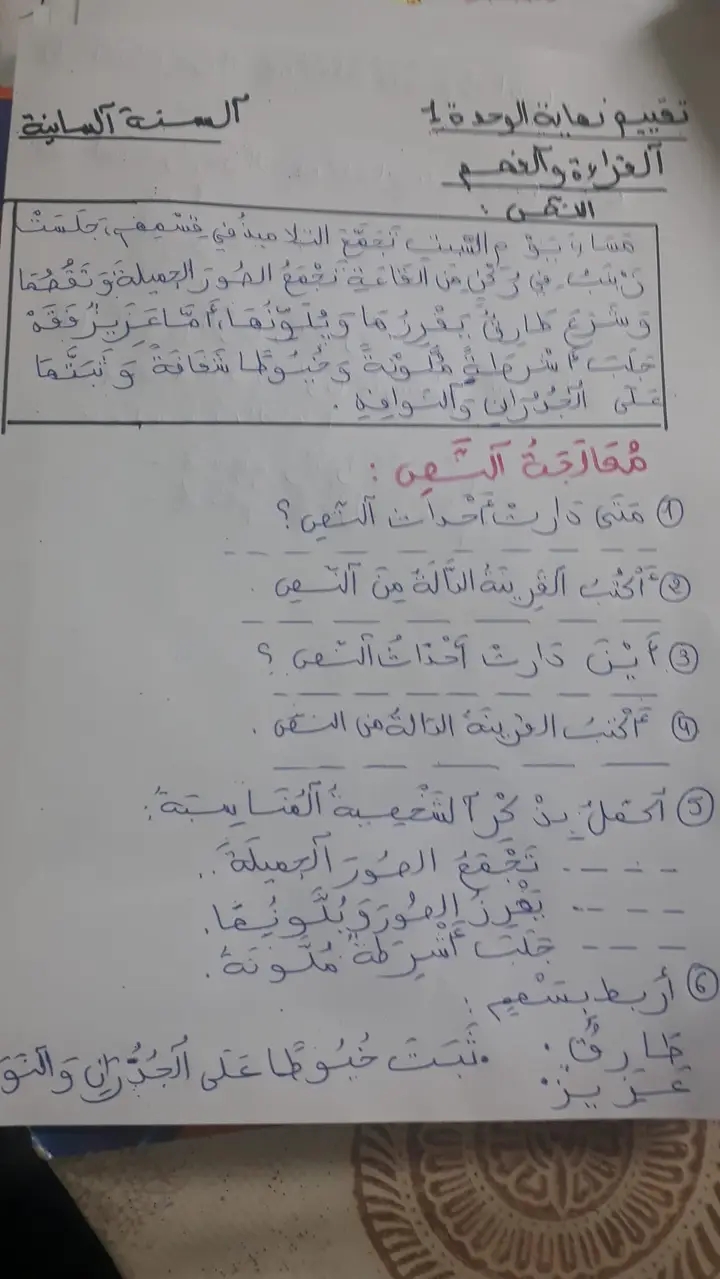 تقييم نهاية الوحدة 1 السنة الثانية
القراءة والفهم
النص :
مَسَاءَ يَوْمِ السَّبْتِ تَجَمَّعَ التَّلَامِيذُ فِي قِسْمِهِمْ، جَلَسَتْ
زَيْنَبُ فِي رُكْنٍ مِنَ الْقَاعَةِ تَجْمَعُ الصُّوَرَ الْجَمِيلَةَ وَتَقُصُّهَا
وَشَرَعَ طَارِقٌ يَفْرِزُهَا وَيُلَوِّنُهَا، أَمَّا عَزِيزٌ فَقَدْ
جَلَبَ أَشْرِطَةً مُلَوَّنَةً وَخُيُوطًا شَفَّافَةً وَثَبَّتَهَا
عَلَى الْجُدْرَانِ وَالنَّوَافِذِ .
مُعَالَجَةُ النَّصِ :
① مَتَى دَارَتْ أَحْدَاثُ النَّصِ ؟
② أَكْتُبُ الْقَرِينَةَ الدَّالَّةَ مِنَ النَّصِ .
③ أَيْنَ دَارَتْ أَحْدَاثُ النَّصِ ؟
④ أَكْتُبُ القرينَةَ الدالةَ من النصِ .
⑤ أكملُ بِذِكْرِ الشَّخْصِيةِ الْمُنَاسِبَةِ:
---- تَجْمَعُ الصُوَرَ الْجَمِيلَةَ ..
---- يَفْرِزُ الصُوَرَ وَيُلَوِّنُهَا.
---- جَلَبَ أَشْرِطَةً مُلَوَّنَةً.
⑥ أربط بِسَهْمٍ :
طَارِقٌ . .ثَبَّتَ خُيُوطًا عَلَى الْجُدْرَانِ
عَزِيزٌ.